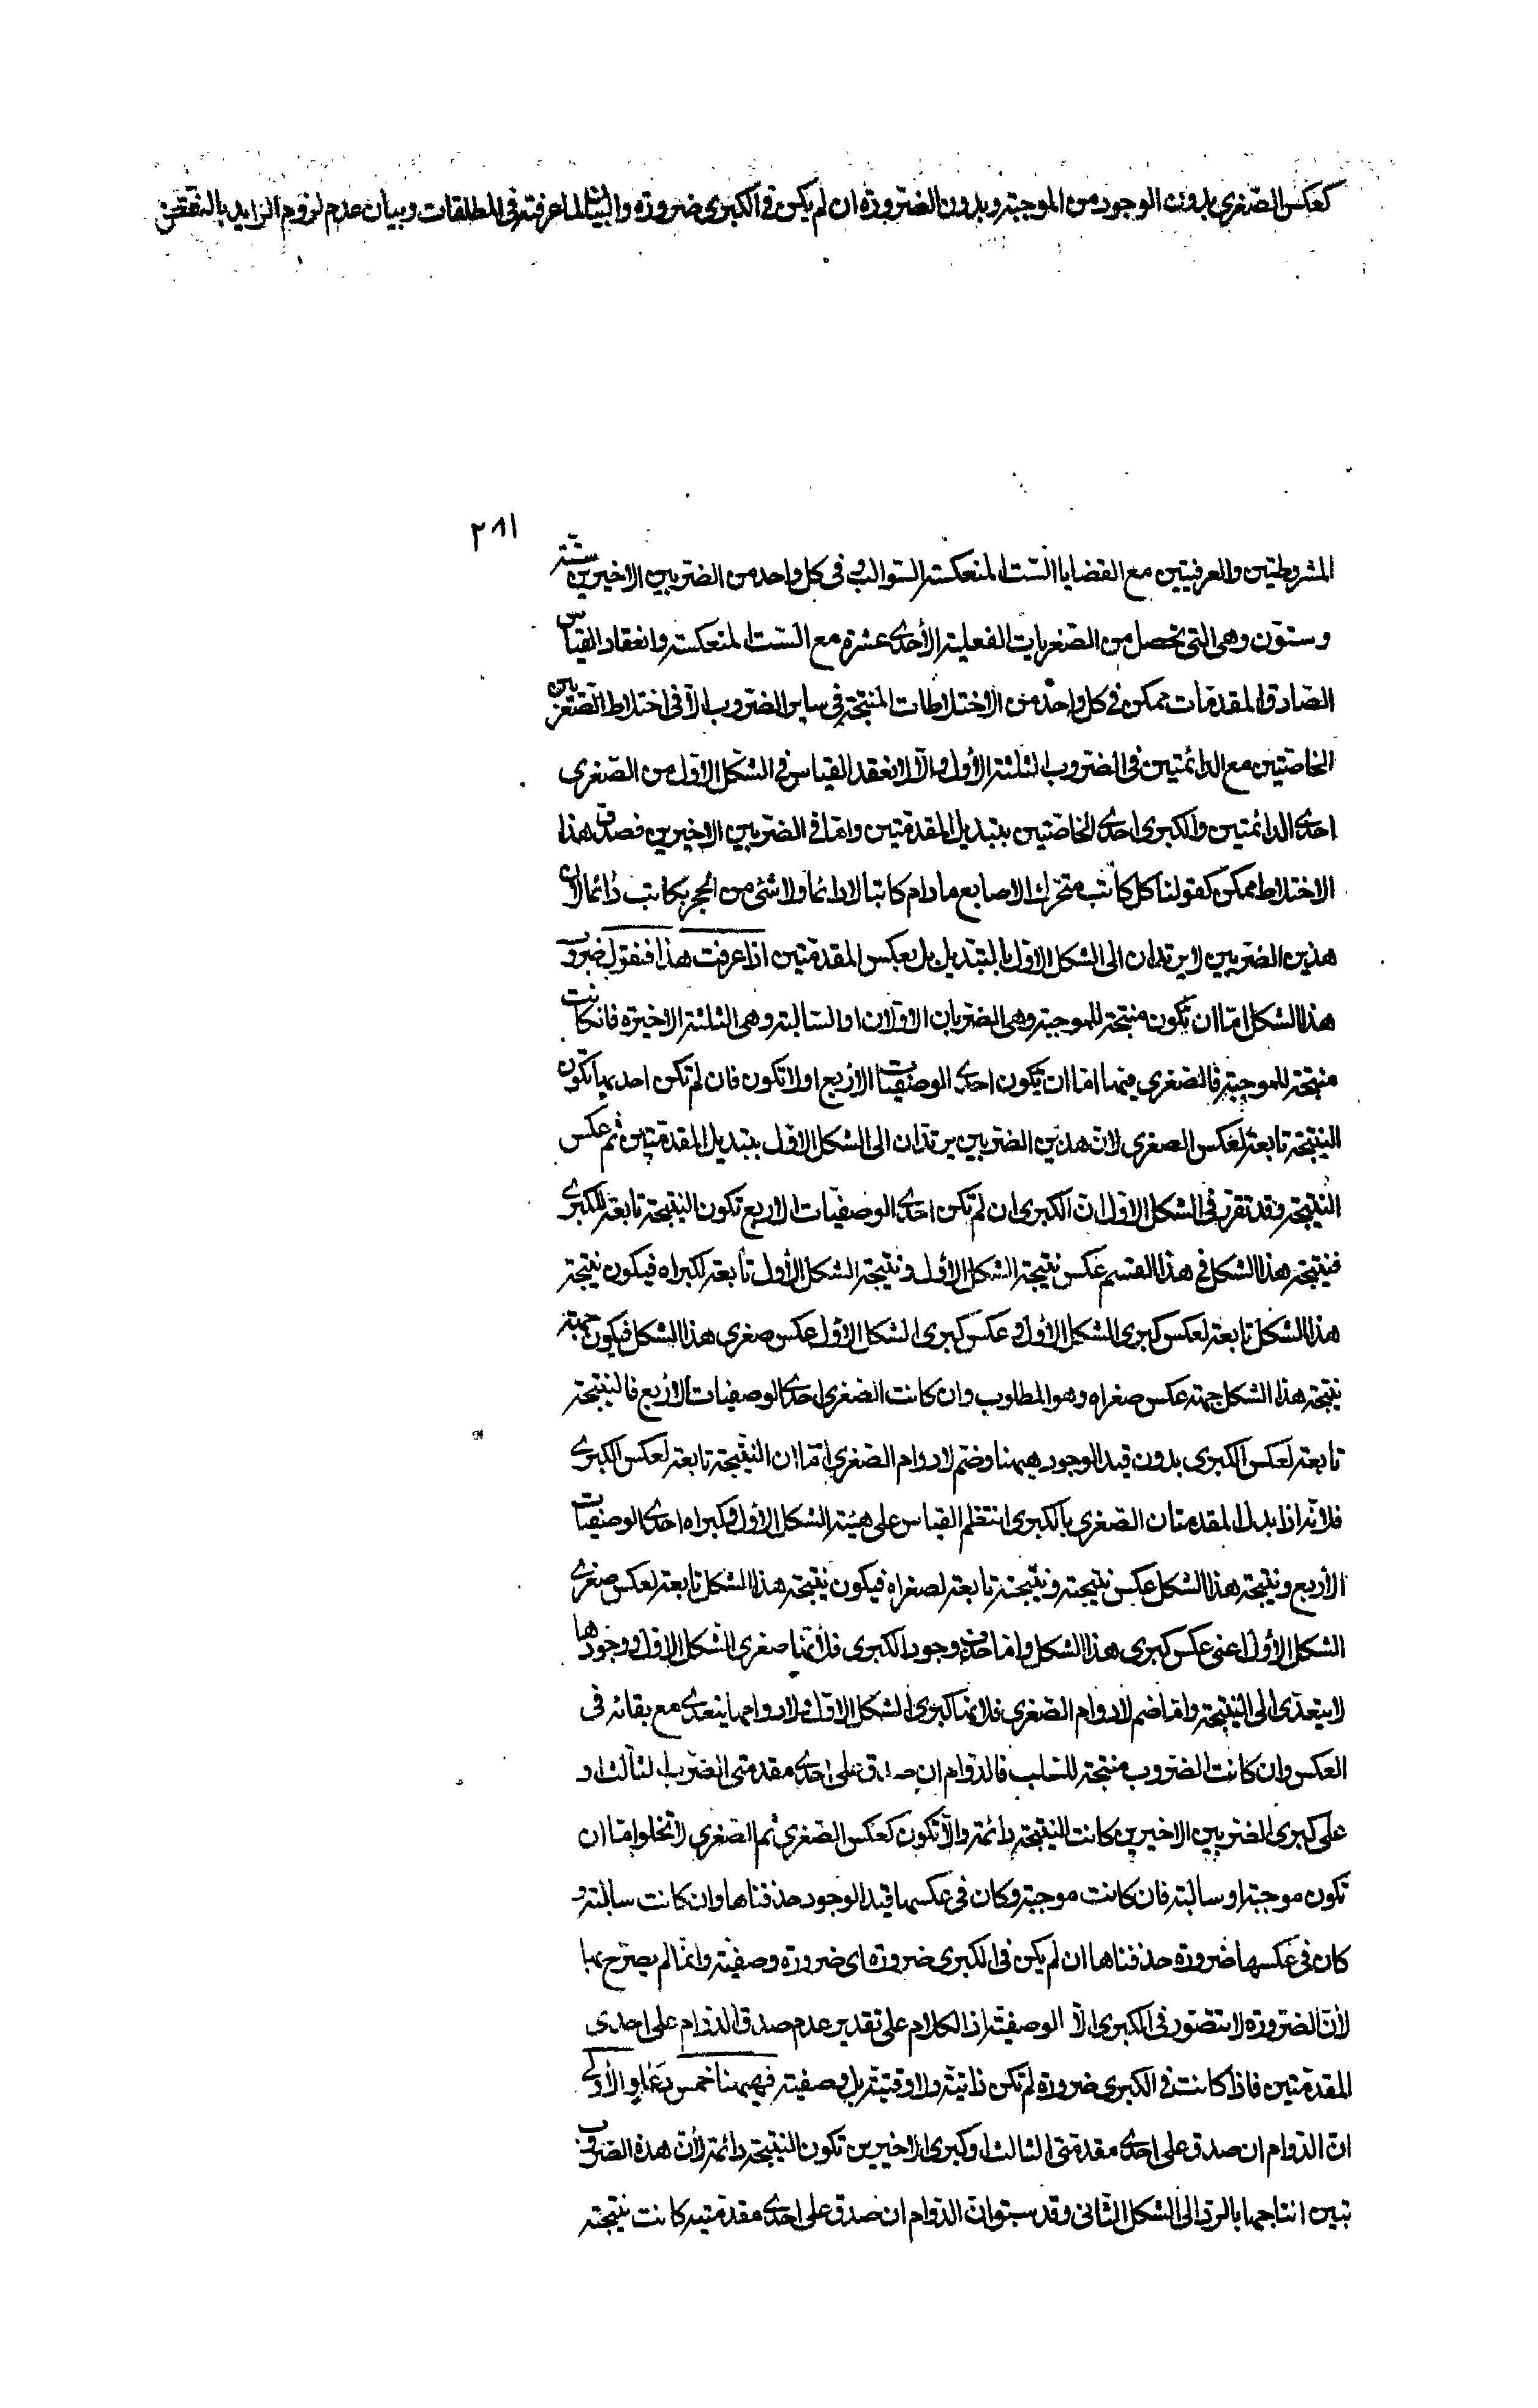 كعكس الصّغرى بدون الوجود من الموجبة وبدون الضّرورة ان لم يكن فى الكبرى ضرورة والبيان لما عرفته فى المطلقات وبيان عدم لزوم الزايد بالنقض
٢٨١
المشروطتين والعرفيتين مع القضايا السّت المنعكسة السّوالب و فى كل واحد من الضّربين الاخيرين ستّة
وستّون وهى التى تحصل من الصّغريات الفعلية الأحدى عشرة مع السّت المنعكسة وانعقاد القياس
الصّادق المقدمات ممكن فى كل واحد من الاختلاطات المنتجة فى ساير الضّروب الّا فى اختلاط الصّغريين
الخاصّتين مع الدائمتين فى الضّروب الثلثة الأول والّا لانعقد القياس فى الشّكل الاوّل من الصّغرى
احدى الدائمتين والكبرى احدى الخاصّتين بتبديل المقدمتين وامّا فى الضّربين الاخيرين فصدق هذا
الاختلاط ممكن كقولنا كل كاتب متحرك الاصابع مادام كاتبا لا دائما ولا شئ من الحجر بكاتب دائما لان
هذين الضّربين لا يرتدان الى الشكل الاوّل بالتبديل بل بعكس المقدمتين اذا عرفت هذا فنقول ضروب
هذا الشكل امّا ان تكون منتجة للموجبة وهى الضّربان الاوّلان او السّالبة وهى الثلثة الاخيرة فان كانت
منتجة للموجبة فالصّغرى فيها امّا ان تكون احدى الوصفيّات الأربع او لا تكون فان لم تكن احديها تكون
النتيجة تابعة لعكس الصغرى لانّ هذين الضّربين يرتدّان الى الشكل الاوّل بتبديل المقدمتين ثم عكس
النتيجة وقد تقرّر فى الشكل الاوّل انّ الكبرى ان لم تكن احدى الوصفيّات الاربع تكون النتيجة تابعة للكبرى
فنتيجة هذا الشكل فى هذا القسم عكس نتيجة الشكل الأول ونتيجة الشكل الأول تابعة لكبراه فيكون نتيجة
هذا الشكل تابعة لعكس كبرى الشكل الأول وعكس كبرى الشكل الاوّل عكس صغرى هذا الشكل فيكون جهة
نتيجة هذا الشكل جهة عكس صغراه وهو المطلوب وان كانت الصغرى احدى الوصفيات الأربع فالنتيجة
تابعة لعكس الكبرى بدون قيد الوجود هيهنا وضمّ لا دوام الصّغرى امّا ان النتيجة تابعة لعكس الكبرى
فلانّه اذا بدل المقدمتان الصغرى بالكبرى انتظم القياس على هيئة الشكل الأول وكبراه احدى الوصفيّات
الأربع ونتيجة هذا الشكل عكس نتيجته ونتيجته تابعة لصغراه فيكون نتيجة هذا الشكل تابعة لعكس صغرى
الشكل الأول اعنى عكس كبرى هذا الشكل وامّا حذف وجود الكبرى فلأنّها صغرى الشّكل الاوّل ووجودها
لا يتعدّى الى النتيجة وامّا ضم لا دوام الصّغرى فلانها كبرى الشكل الاوّل ولا دوامها يتعدى مع بقائه فى
العكس وان كانت الضّروب منتجة للسّلب فالدّوام ان صدق على احدى مقدمتى الضّرب الثالث او
على كبرى الضّربين الاخيرين كانت النتيجة دائمة والّا تكون كعكس الصّغرى ثم الصّغرى لا تخلوا امّا ان
تكون موجبة او سالبة فان كانت موجبة وكان فى عكسها قيد الوجود حذفناها وان كانت سالبة و
كان فى عكسها ضرورة حذفناها ان لم يكن فى الكبرى ضرورة اى ضرورة وصفيّة وانّما لم يصرّح بها
لأنّ الضّرورة لا تتصّور فى الكبرى الّا الوصفيّة اذ الكلام على تقدير عدم صدق الدّوام على احدى
المقدمتين فاذا كانت فى الكبرى ضرورة لم تكن ذاتيّة ولا وقتيّة بل وصفيّة فهيهنا خمس دعاو الأولى
انّ الدّوام ان صدق على احدى مقدمتى الثالث او كبرى الاخيرين تكون النتيجة دائمة لأنّ هذه الضّروب
تبين انتاجها بالردّ الى الشكل الثّانى وقد سبق انّ الدّوام ان صدق على احدى مقدمتيه كانت نتيجته